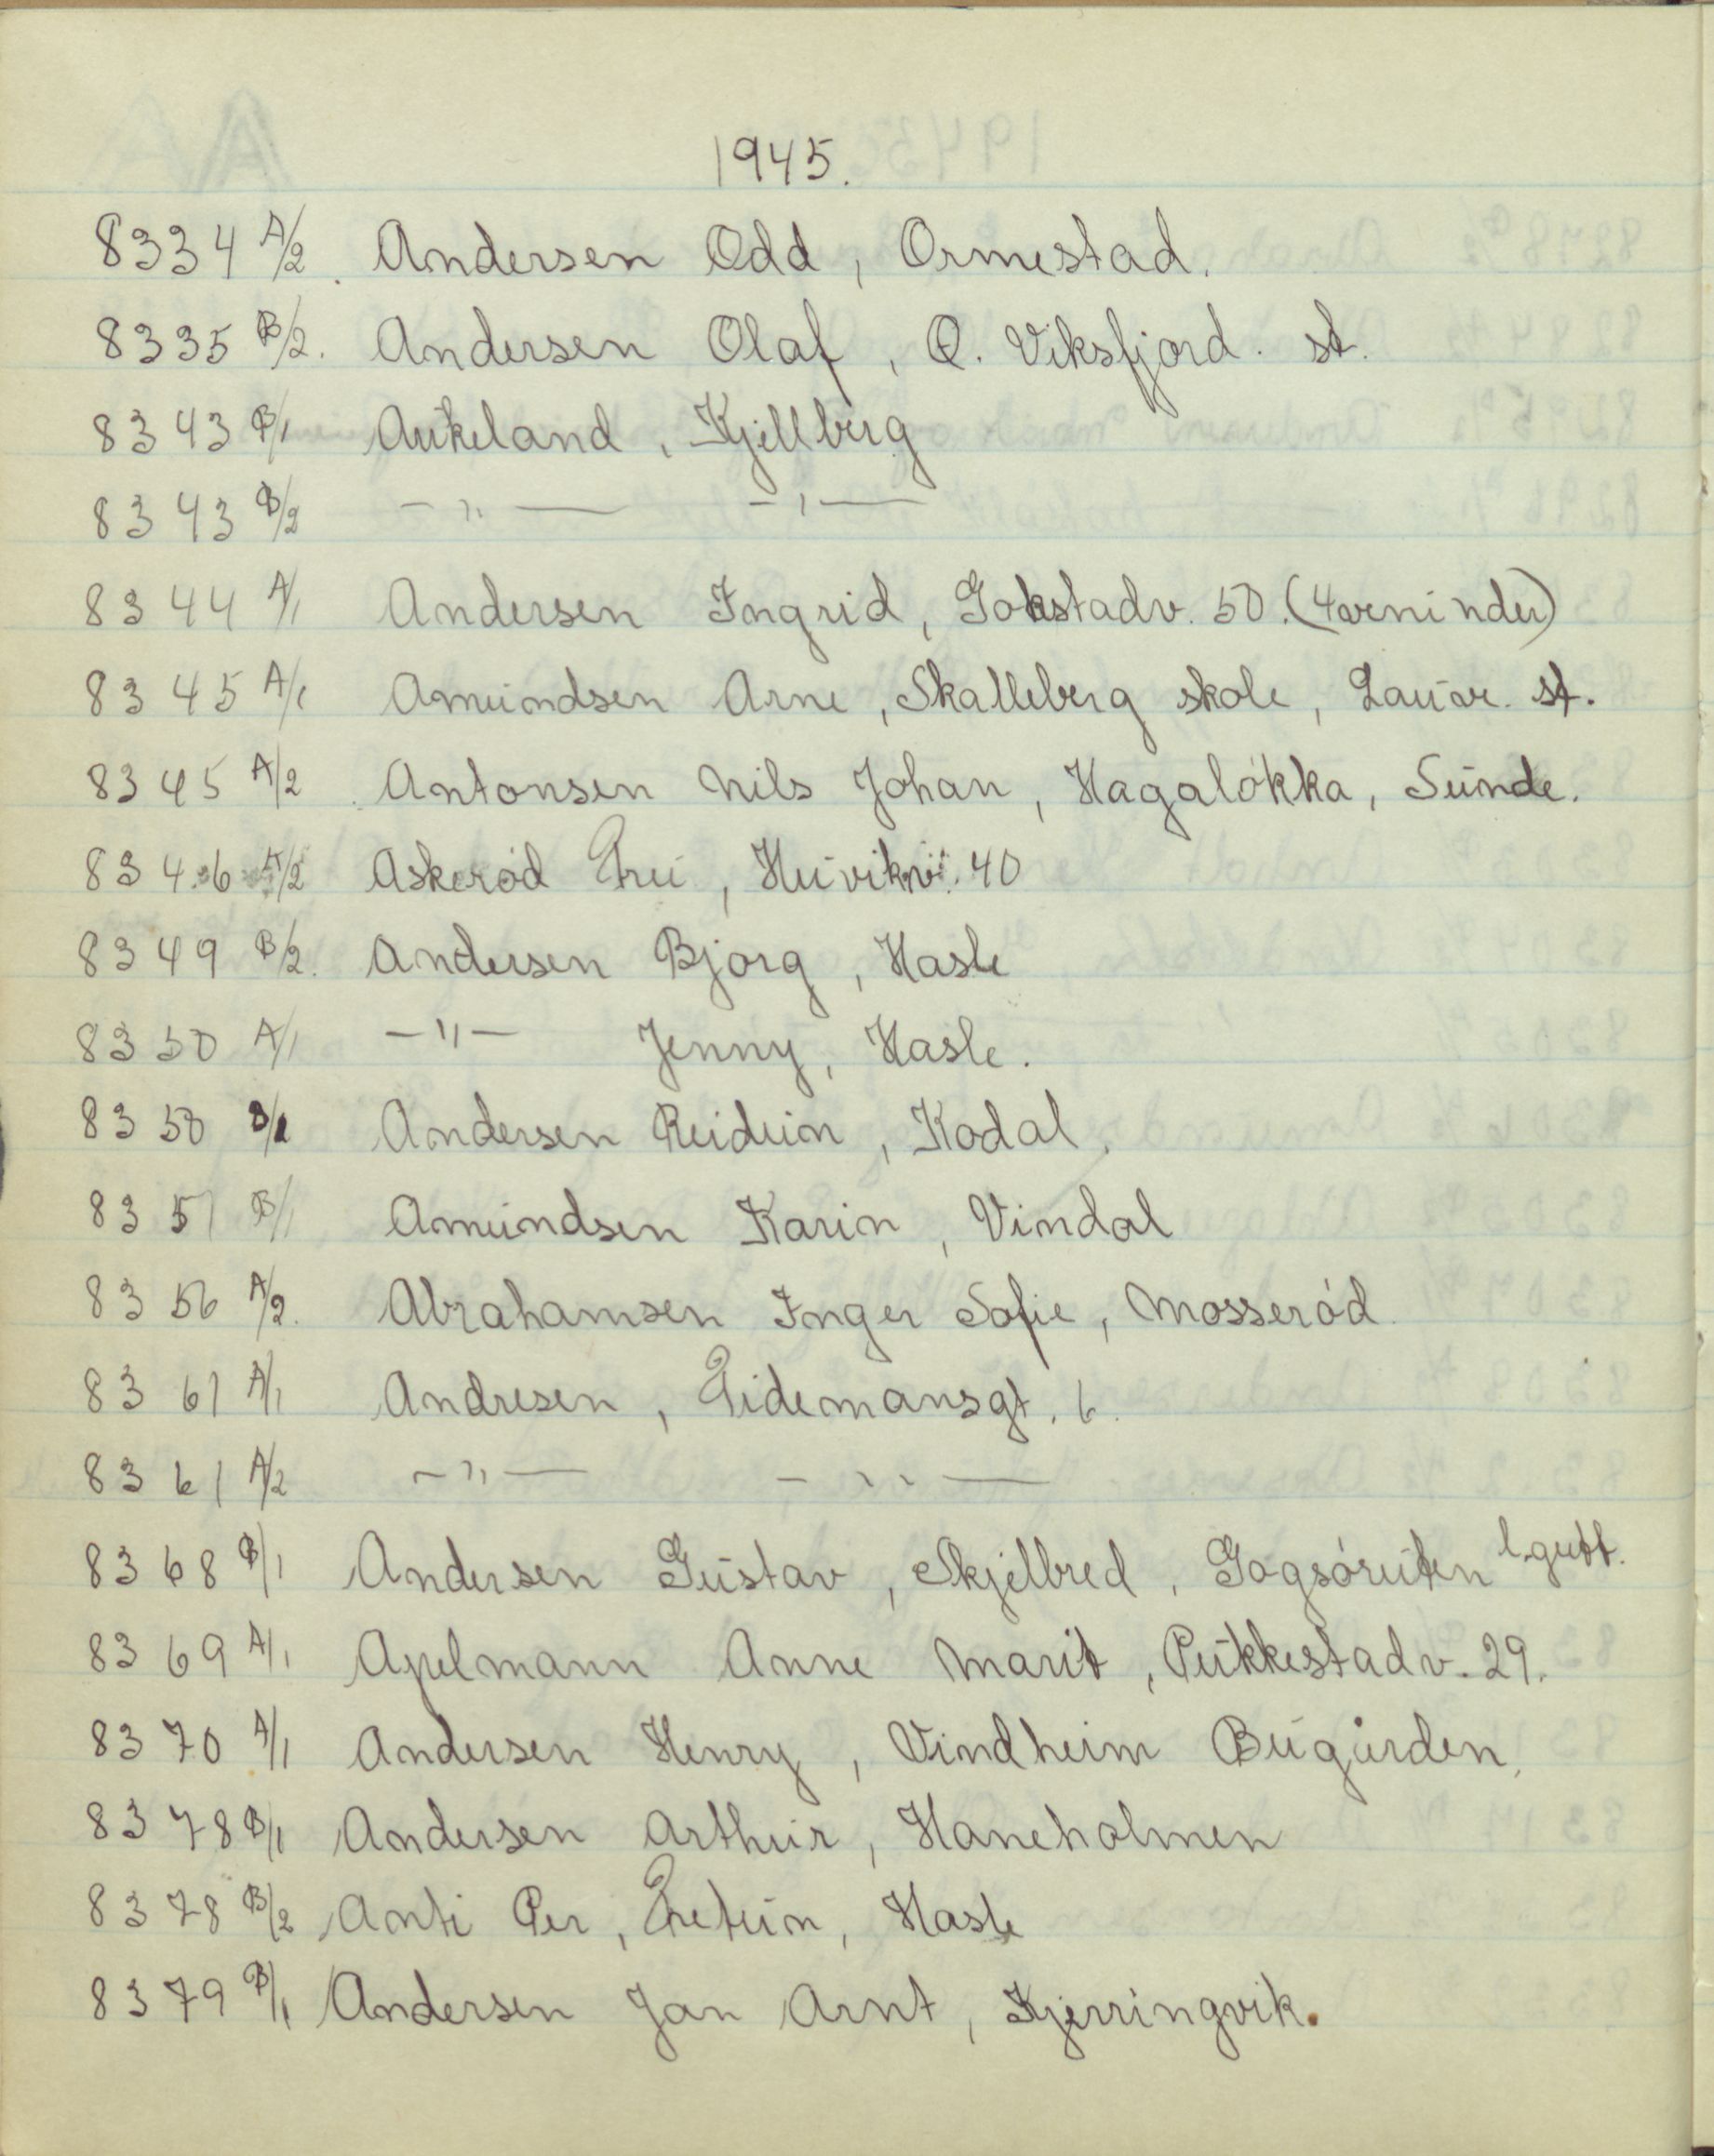 1945.
8334 A/2. Andersen Odd, Ormestad.
8335 B/2. Andersen Olaf, Ø. Viksfjord. st.
8343 B/1 Aukeland, Kjellberg
8343 B/2 -"- -"-
8344 A/1 Andersen Ingrid, Gokstadv. 50. (4 venninder)
8345 A/1 Amundsen Arne, Skalleberg skole, Lauar. st.
8345 A/2 Antonsen Nils Johan, Hagaløkka, Sunde.
8346 A/2 Askerød Fru, Huvikv. 40
8349 B/2. Andersen Bjørg, Hasle
8350 A/1 -"- Jenny, Hasle.
8350 B/1 Andersen Reidun, Kodal.
8351 B/1 Amundsen Karin, Vindal
8356 A/2. Abrahamsen Inger Sofie, Mosserød.
8361 A/1 Andresen, Tidemansgt. 6.
8361 A/2 -"- -"-
8368 B/1 Andersen Gustav, Skjelbred, Gogsøruten l.gutt.
8369 A/1 Apelmann Anne Marit, Pukkestadv. 29.
8370 A/1 Andersen Henry, Vindheim Bugården.
8378 B/1 Andersen Arthur, Haneholmen
8378 B/2 Anti Per, Hasle
8379 B/1 Andersen Jan Arnt, Kjerringvik.